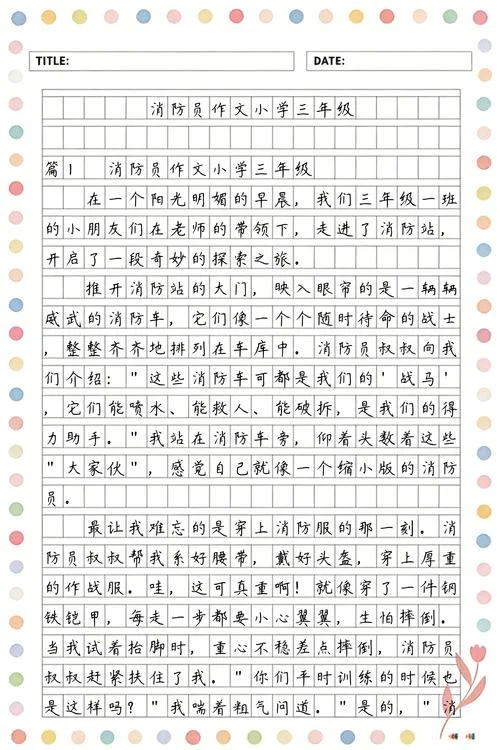 TITLE: DATE:
消防员作文小学三年级
篇1 消防员作文小学三年级
在一个阳光明媚的早晨，我们三年级一班
的小朋友们在老师的带领下，走进了消防站，
开启了一段奇妙的探索之旅。
推开消防站的大门，映入眼帘的是一辆辆
威武的消防车，它们像一个个随时待命的战士
，整整齐齐地排列在车库中。消防员叔叔向我
们介绍："这些消防车可都是我们的'战马'
，它们能喷水、能救人、能破拆，是我们的得
力助手。"我站在消防车旁，仰着头数着这些
"大家伙"，感觉自己就像一个缩小版的消防
员。
最让我难忘的是穿上消防服的那一刻。消
防员叔叔帮我系好腰带，戴好头盔，穿上厚重
的作战服。哇，这可真重啊！就像穿了一件钢
铁铠甲，每走一步都要小心翼翼，生怕摔倒。
当我试着抬脚时，重心不稳差点摔倒，消防员
叔叔赶紧扶住了我。"你们平时训练的时候也
是这样吗？"我喘着粗气问道。"是的，"消